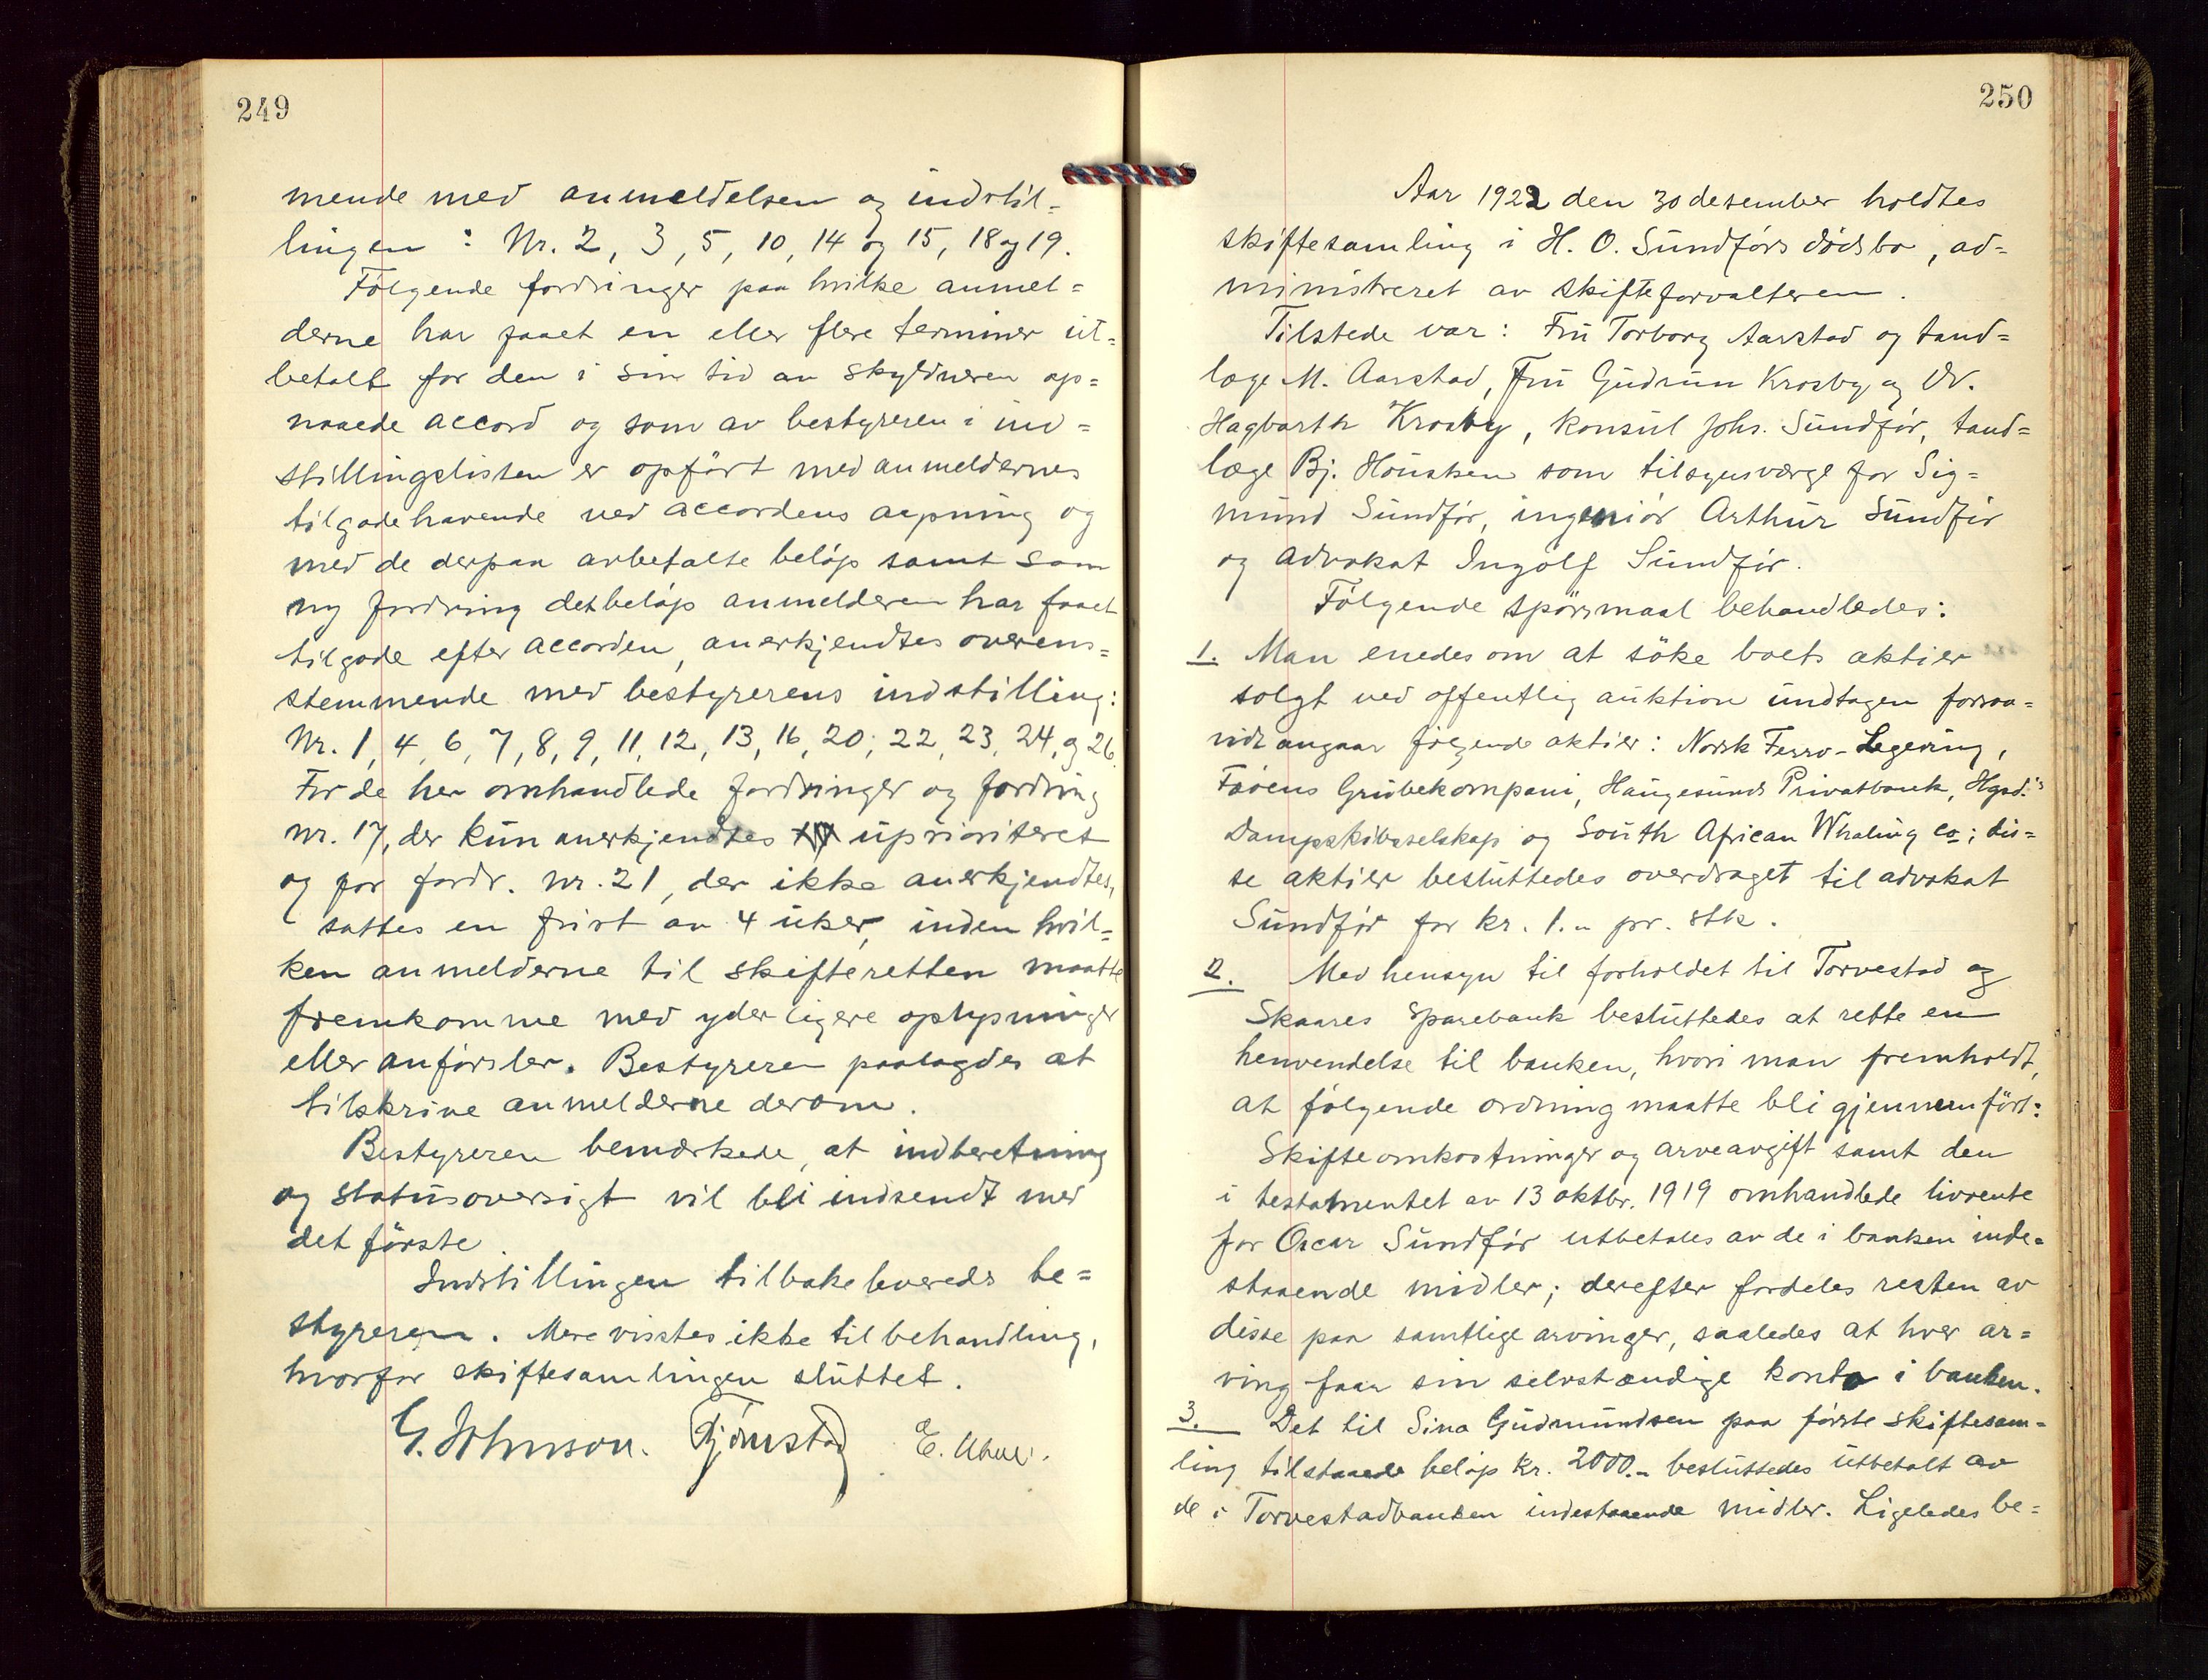 249
mende med anmeldelsen og indstil=
lingen : Nr. 2, 3, 5, 10, 14 og 15, 18 og 19.
Følgende fordringer paa hvilke anmel=
derne har faaet en eller flere terminer ut=
betalt for den i sin tid av skyldneren op=
naaede accord og som av bestyreren i ind=
stillingslisten er opført med anmeldernes
tilgodehavende ved accordens aapning og
med de derpaa avbetalte beløp samt som
ny fordring det beløp anmelderen har faaet
tilgode efter accorden, anerkjendtes overens=
stemmende med bestyrerens indstilling:
Nr. 1, 4, 6, 7, 8, 9, 11, 12, 13, 16, 20, 22, 23, 24, og 26.
For de her omhandlede fordringer og fordring
nr. 17, der kun anerkjendtes uprioriteret
og for fordr. nr. 21, der ikke anerkjendtes,
sattes en frist av 4 uker, inden hvil=
ken anmelderne til skifteretten maatte
fremkomme med yderligere oplysninger
eller anførsler. Bestyreren paalagdes at
tilskrive anmelderne derom.
Bestyreren bemærkede, at indberetning
og statusoversigt vil bli indsendt med
det første
Indstillingen tilbakeleveredes be=
styreren. Mere visstes ikke til behandling,
hvorfor skiftesamlingen sluttet.
G. Johnson. Gjømstad
250
Aar 1922 den 30 desember holdtes
skiftesamling i H. O. Sundførs dødsbo, ad=
ministreret av skifteforvalteren.
Tilstede var: Fru Torborg Aarstad og tand=
læge M. Aarstad, Fru Gudrun Krosby og Dr.
Hagbarth Krosby, konsul Johs. Sundfør, tand=
læge Bj. Housken som tilsynsværge for Sig=
mund Sundfør, ingeniør Arthur Sundfør
og advokat Ingolf Sundfør.
Følgende spørsmaal behandledes:
1. Man enedes om at søke boets aktier
solgt ved offentlig auktion undtagen forsaa=
vidt angaar følgende aktier: Norsk Ferro-Legering,
Føøens Grubekompani, Haugesunds Privatbank, Hgsd.'s
Dampskibsselskap og South African Whaling Co; dis=
se aktier besluttedes overdraget til advokat
Sundfør for kr. 1.- pr. stk.
2. Med hensyn til forholdet til Torvestad og
Skaares Sparebank besluttedes at rette en
henvendelse til banken, hvori man fremholdt,
at følgende ordning maatte bli gjennemført:
Skifteomkostninger og arveavgift samt den
i testamentet av 13 oktbr. 1919 omhandlede livrente
for Oscar Sundfør utbetales av de i banken inde=
staaende midler; derefter fordeles resten av
disse paa samtlige arvinger, saaledes at hver ar=
ving faar sin selvstændige konto i banken.
3. Det til Sina Gudmundsen paa første skiftesam=
ling tilstaaede beløp kr. 2000.- besluttedes utbetalt av
de i Torvestadbanken indestaaende midler. Ligeledes be=